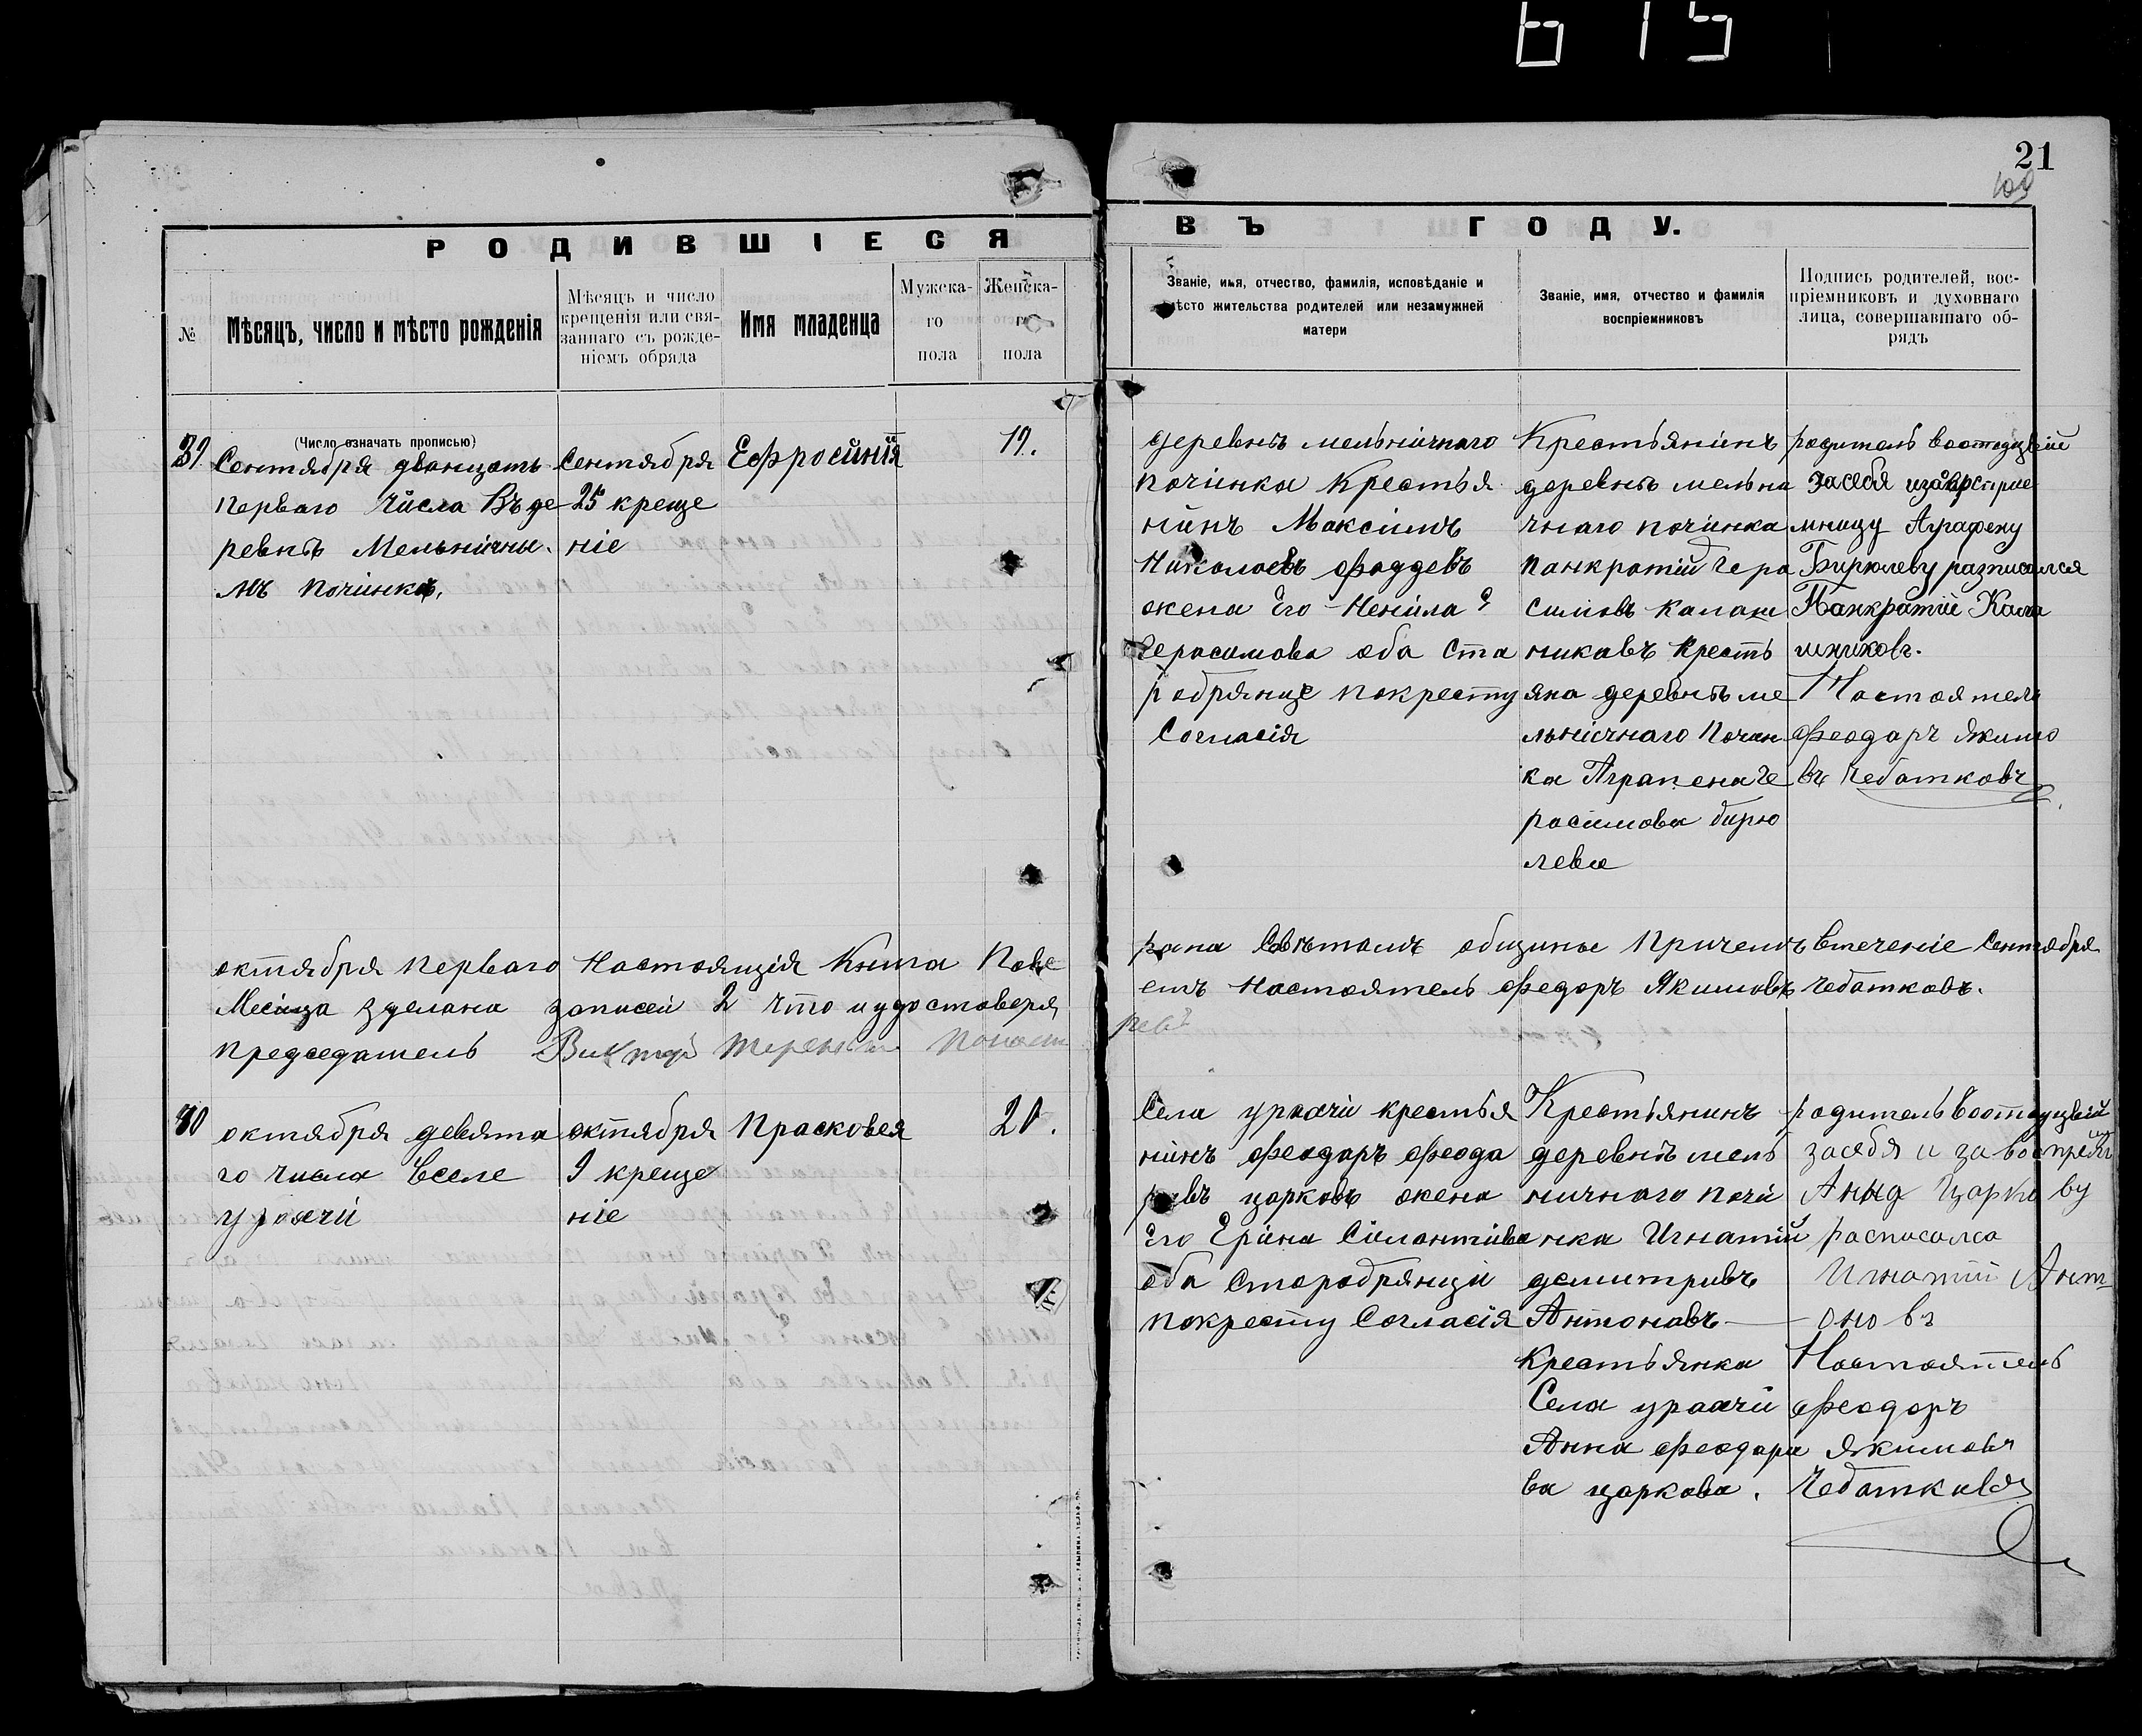 615
21
РОДИВШІЕСЯ
ВЪ ГОДУ.
№
Мѣсяцъ, число и мѣсто рожденія
Мѣсяцъ и число
крещенія или свя-
заннаго съ рожде-
ніемъ обряда
Имя младенца
Мужска-
го
пола
Женска-
го
пола
Званіе, имя, отчество, фамилія, исповѣданіе и
мѣсто жительства родителей или незамужней
матери
Званіе, имя, отчество и фамилія
воспріемниковъ
Подпись родителей, вос-
пріемниковъ и духовнаго
лица, совершавшаго об-
рядъ
(Число означать прописью)
39
Сентября дванцать
перваго числа Въ де
ревнѣ Мельничны.
мъ починкѣ.
Сентября
25 креще
ніе
Ефросинія
19.
деревнѣ мельничнаго
починка Крестья
нинъ Максимъ
Николаевъ Фаддевъ
жена Его Ненила
Герасимова оба Ста
робрянце покресту
Согласія
Крестьянинъ
деревнѣ мельна
чнаго починка
панкратій Гера
симовъ калаш
никавъ Кресть
яна деревнѣ ме
льничнаго Почин
ка Аграпена Ге
расимова бирю
лева
родитель
засебя
мницу Аграфену
Бирюлеву разписался
Панкратій Кала
шниковъ.
Настоятель
Феодаръ Якимо
въ Чебатковъ
октября перваго Настоящія Книга Пове
рена Савѣтамъ общины Причемъ втеченіе Сентября
Месица зделана записей 2 что и удостоверя
емъ Настоятель Федоръ Якимовъ Чебатковъ.
председатель
40
октября девята
го числа Вселе
ураачи
октября
9 креще
ніе
Прасковея
20.
Села ураачи крестья
нинъ Феодаръ Феода
равъ царковъ жена
Его Ерина Силантива
оба Старобрянци
покресту Согласія
Крестьянинъ
деревнѣ мель
ничнаго почи
нка Игнатій
демитривъ
Антонавъ
Крестьянка
Села ураачи
Анна Феодара
ва царкова.
родитель
засебя и за
Царко ву
расписалса
Игнатій Ант-
оновъ
Настоятель
Феодоръ
Якимовъ